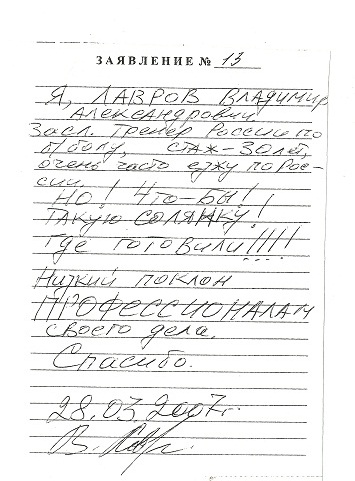 ЗАЯВЛЕНИЕ № 13
Я, ЛАВРОВ ВЛАДИМИР
АЛЕКСАНДРОВИЧ
Засл. Тренер России по
б/болу, СТАЖ-30лет,
очень часто езжу по Рос-
сии.
НО! Что-БЫ!
ТАКУЮ СОЛЯНКУ!
Где ГОТОВИЛИ!!!!
Низкий поклон
ПРОФЕССИОНАЛАМ
своего дела.
Спасибо.
28.03.2007г.
В. Лавр.